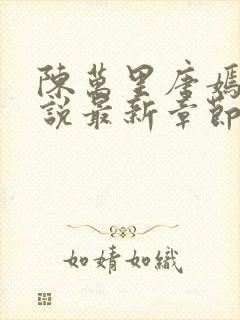 陳萬里唐嫣
說最新章節
如婧如織